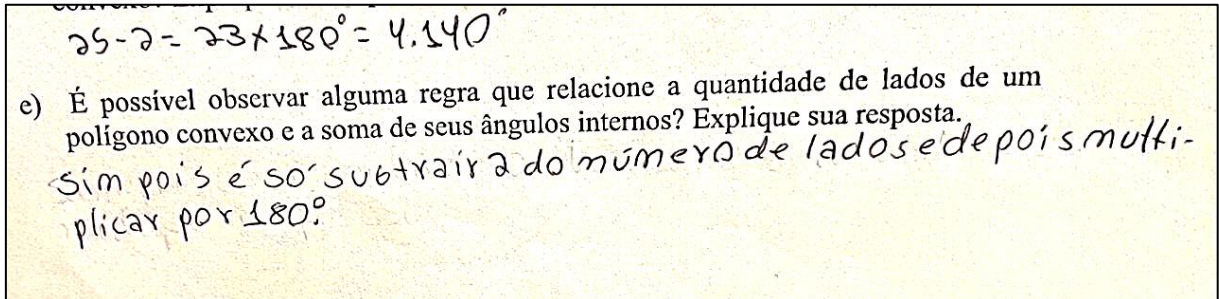 25-2= 23×180°= 4.140°
e) É possível observar alguma regra que relacione a quantidade de lados de um
polígono convexo e a soma de seus ângulos internos? Explique sua resposta.
sim pois é só subtrair 2 do número de lados e depois multi-
plicar por 180°.